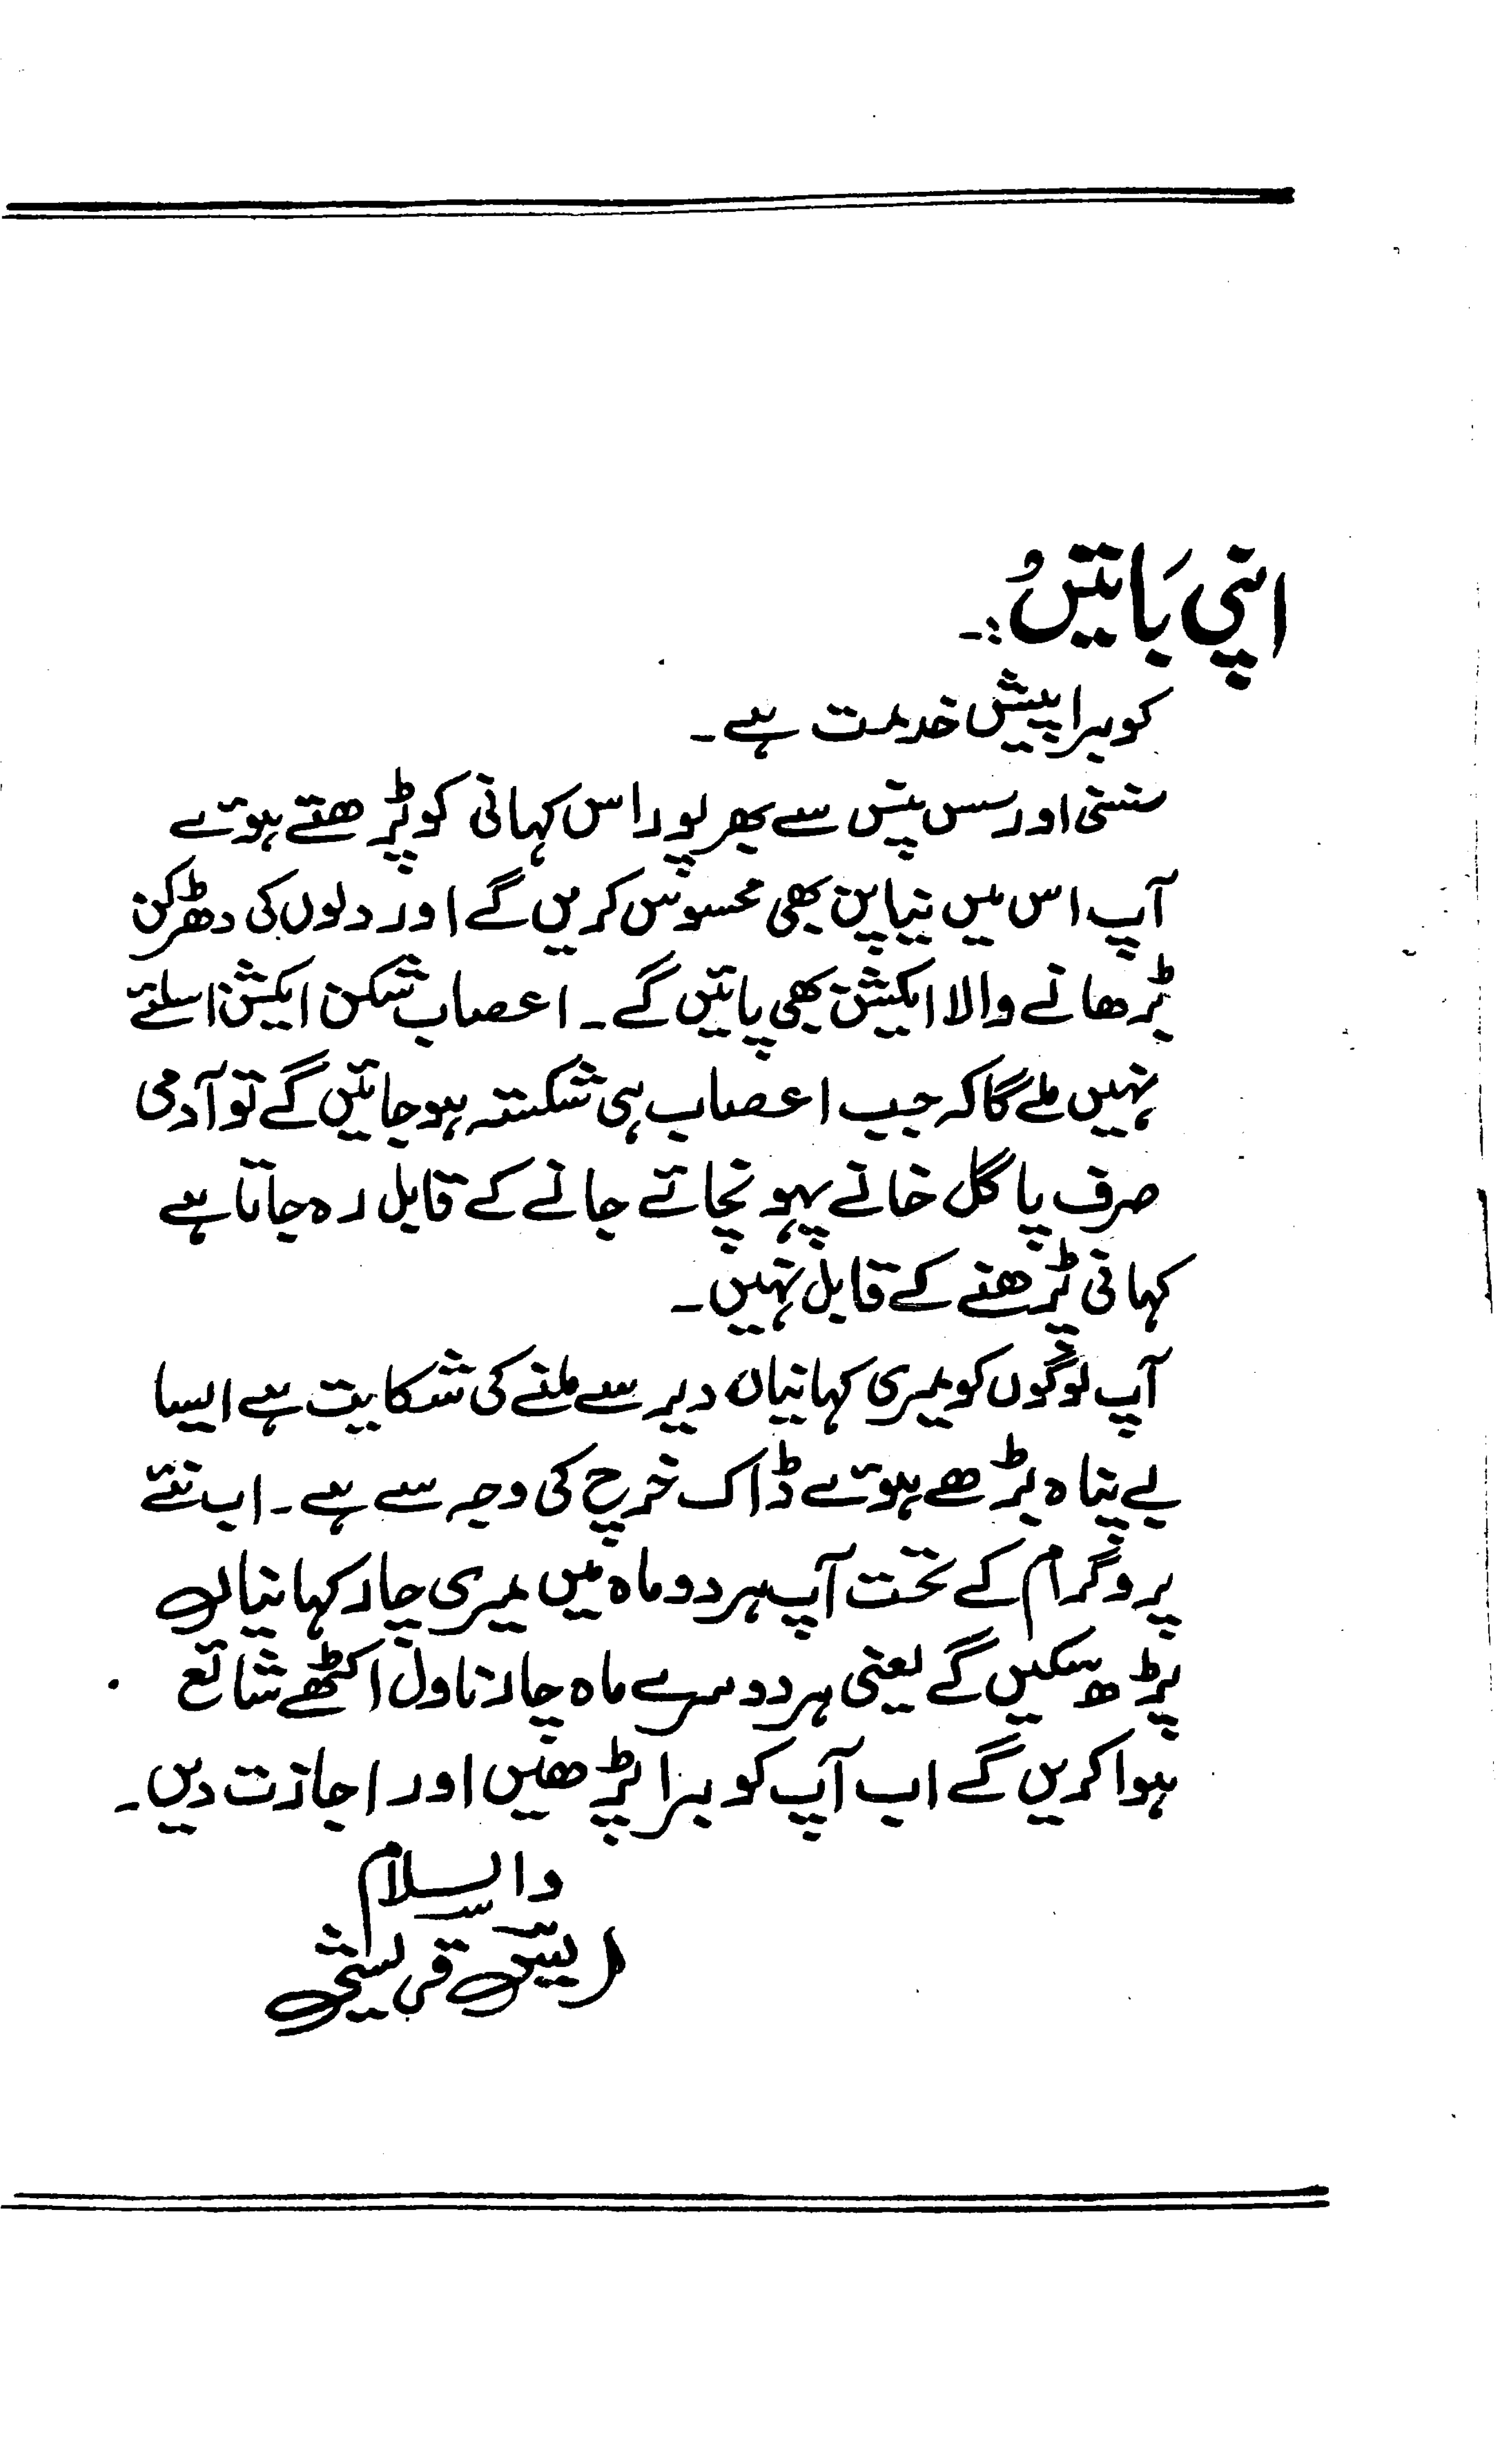 اپنی باتیں :-
کوبرا پیش خدمت ہے ۔
سنسنی اور سس پنس سے بھر پور اس کہانی کو پڑھتے ہوئے
آپ اس میں نیا پن بھی محسوس کریں گے اور دلوں کی دھڑکن
بڑھانے والا ایکشن بھی پائیں گے ۔ اعصاب شکن ایکشن اسلئے
نہیں ملے گا کہ جب اعصاب ہی شکستہ ہو جائیں گے تو آدمی
صرف پاگل خانے پہونچائے جانے کے قابل رہ جاتا ہے
کہانی پڑھنے کے قابل نہیں ۔
آپ لوگوں کو میری کہانیاں دیر سے ملنے کی شکایت ہے ایسا
بے پناہ بڑھے ہوئے ڈاک خرچ کی وجہ سے ہے ۔ اب نئے
پروگرام کے تحت آپ ہر دو ماہ میں میری چار کہانیاں
پڑھ سکیں گے یعنی ہر دوسرے ماہ چار ناول اکٹھے شائع
ہوا کریں گے اب آپ کوبرا پڑھیں اور اجازت دیں ۔
والسلام
انیس قریشی